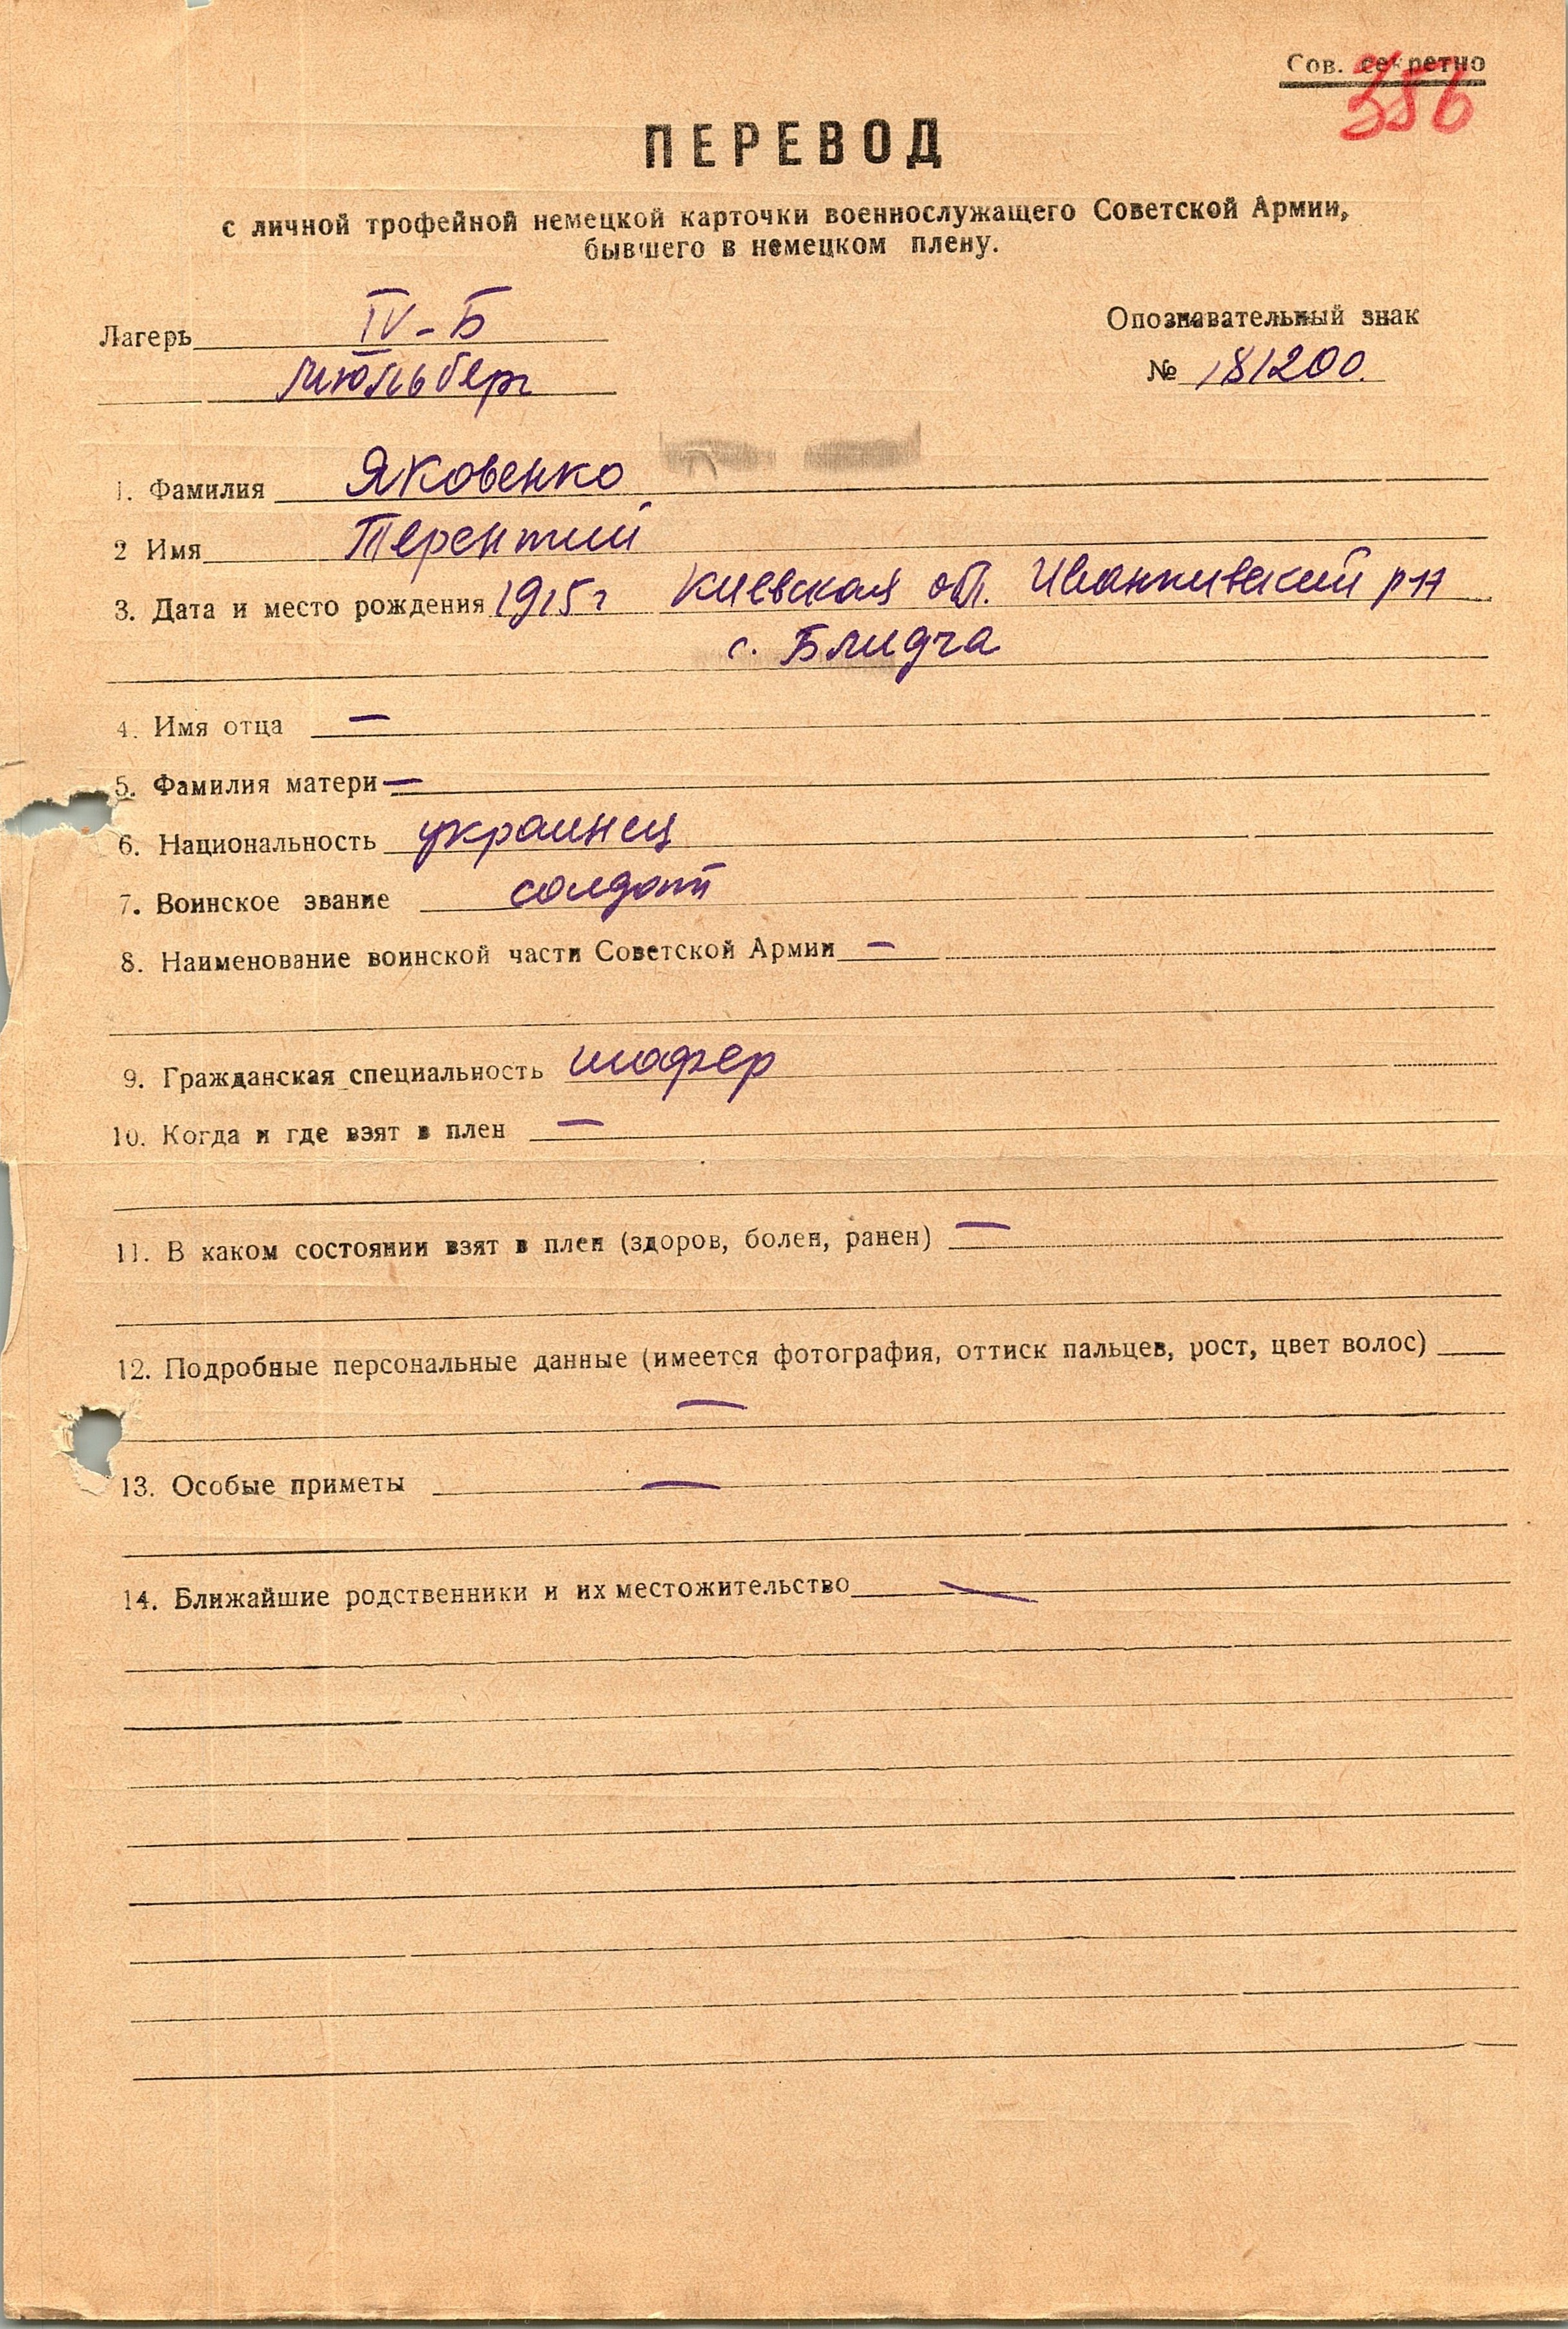 Сов. секретно
356
ПЕРЕВОД
с личной трофейной немецкой карточки военнослужащего Советской Армии,
бывшего в немецком плену.
Лагерь IV-Б
Мюльберг
Опознавательный знак
№ 181200.
1. Фамилия Яковенко
2 Имя Терентий
3. Дата и место рождения 1915 г Киевская обл. Иванкивский р-н
с. Блидча
4. Имя отца —
5. Фамилия матери —
6. Национальность украинец
7. Воинское звание солдат
8. Наименование воинской части Советской Армии —
9. Гражданская специальность шофер
10. Когда и где взят в плен —
11. В каком состоянии взят в плен (здоров, болен, ранен) —
12. Подробные персональные данные (имеется фотография, оттиск пальцев, рост, цвет волос)
—
13. Особые приметы —
14. Ближайшие родственники и их местожительство —